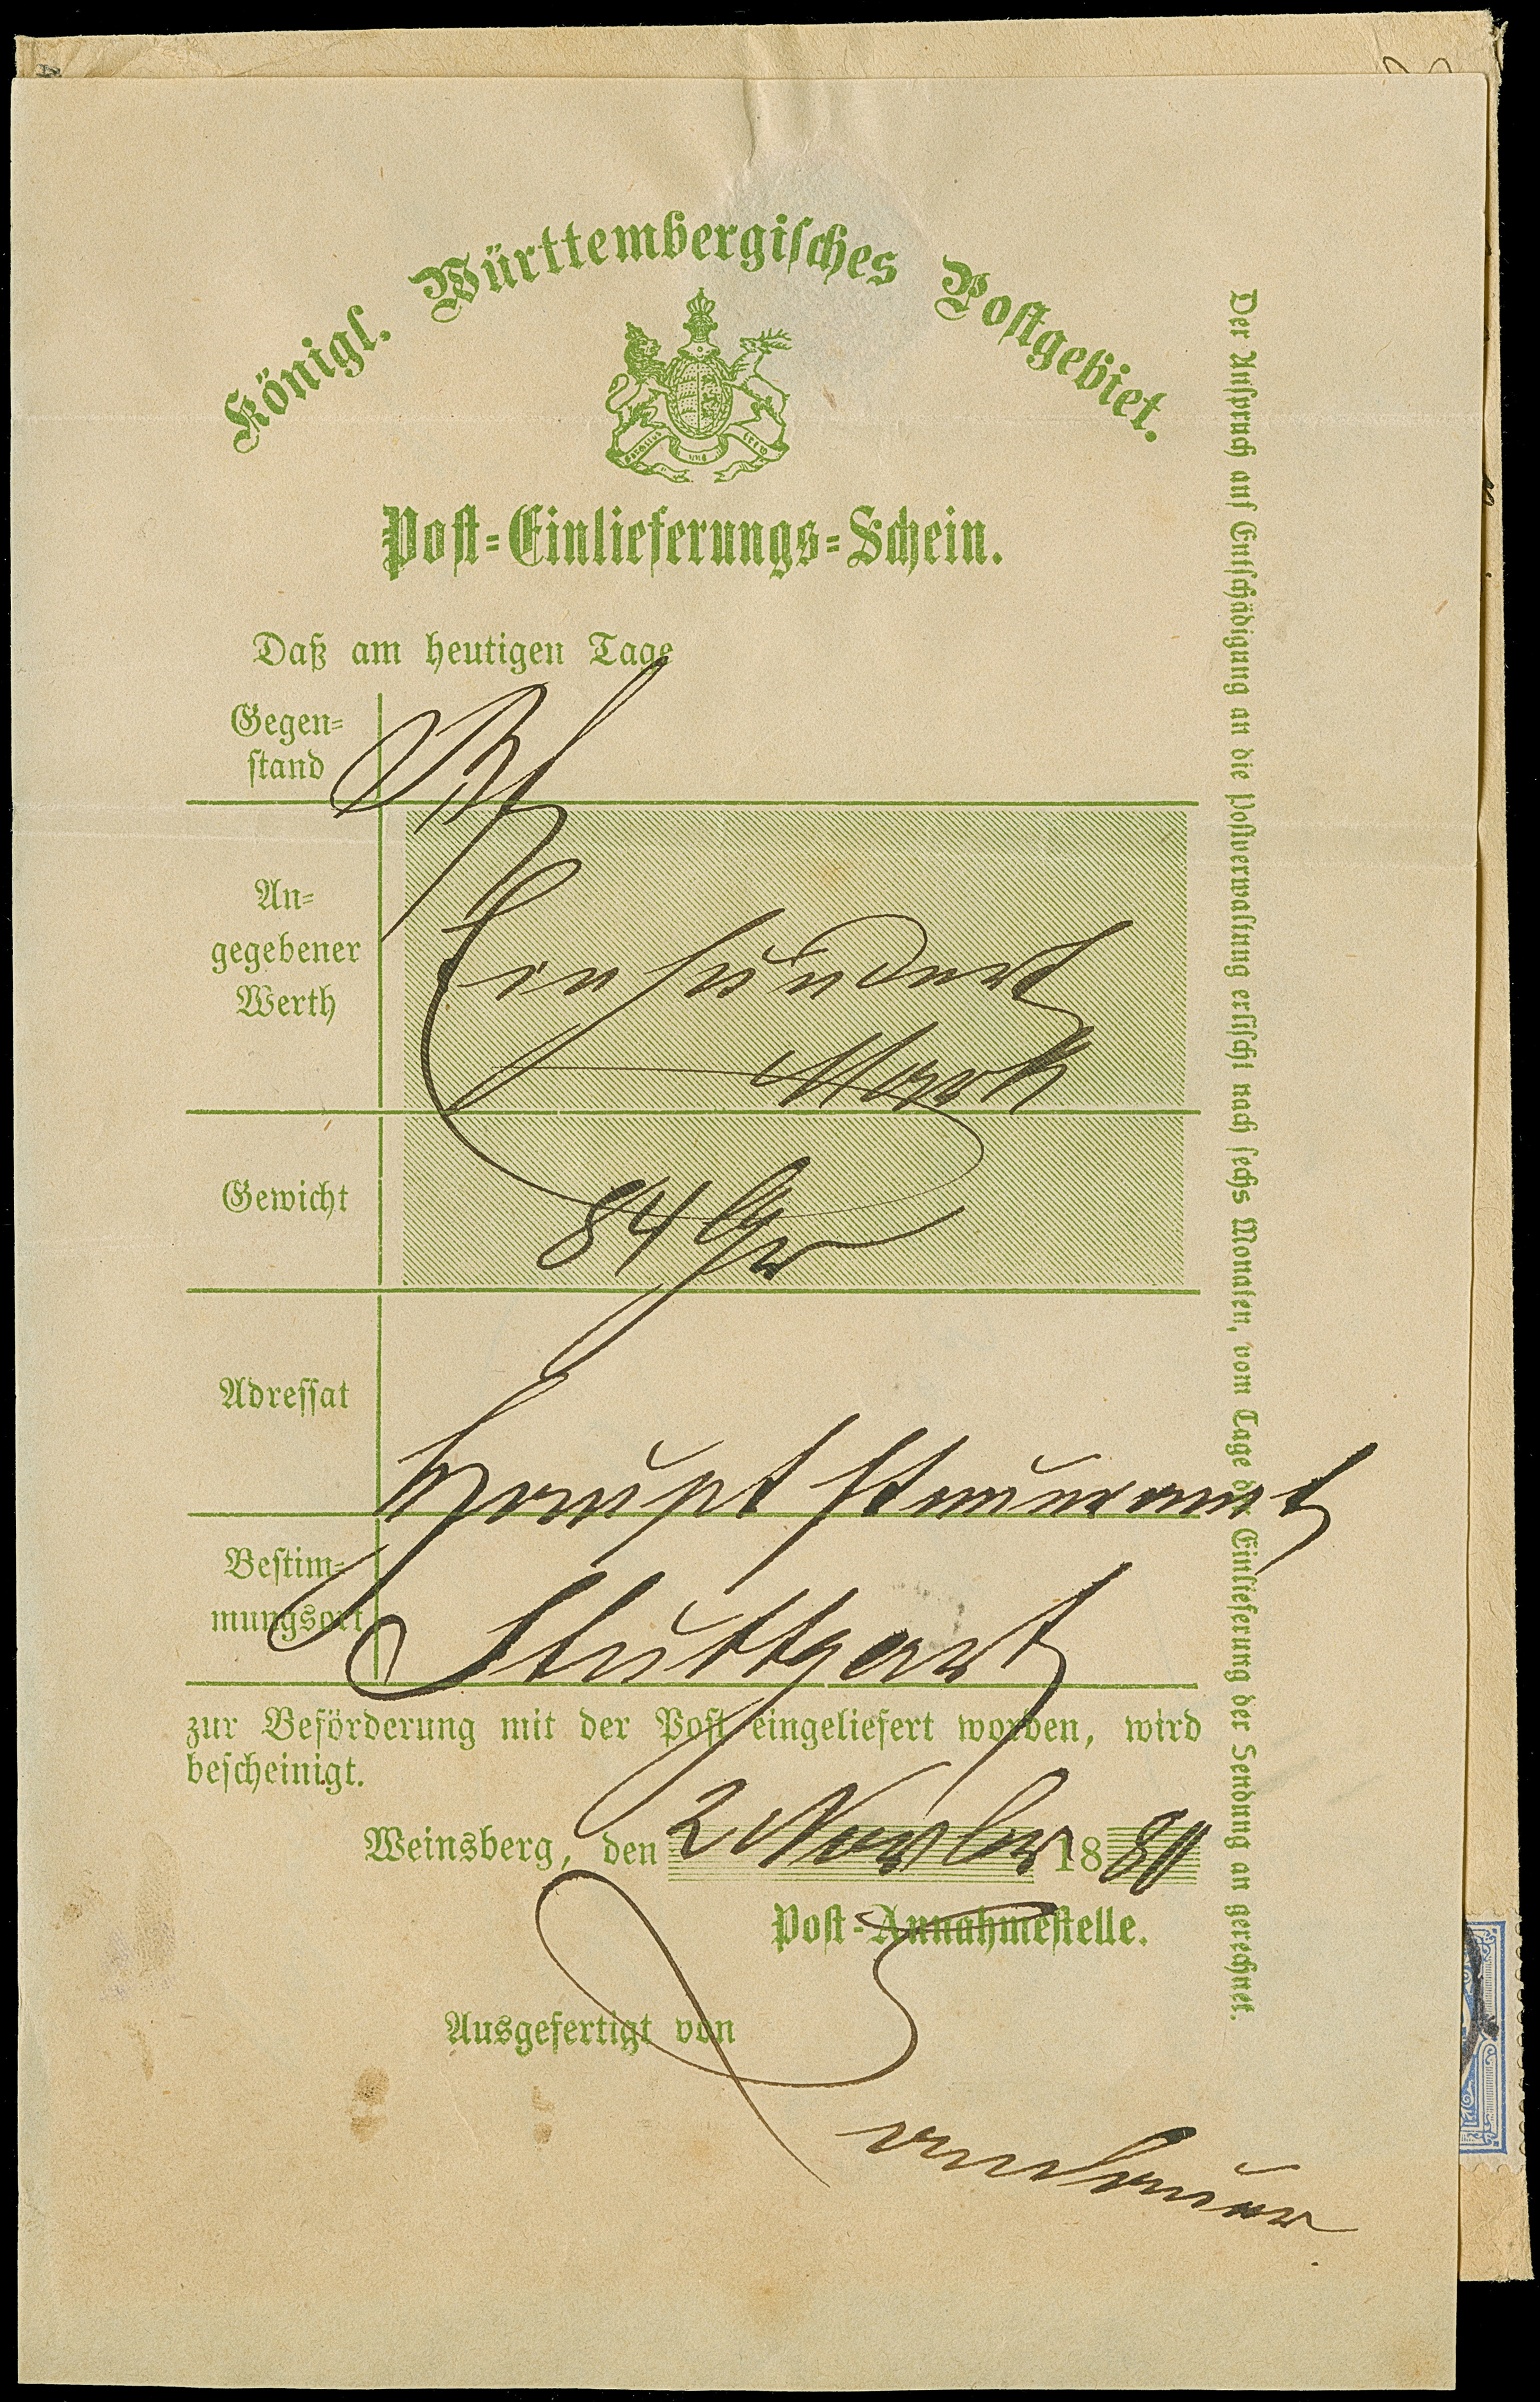 Königl. Württembergisches Postgebiet.
furchtlos und trew
Post-Einlieferungs-Schein.
Daß am heutigen Tage
Gegen-
stand
An-
gegebener
Werth
Einhundert
Mark
Gewicht
84 Gr
Adressat
Hauptsteueramt
Bestim-
mungsort
Stuttgart
zur Beförderung mit der Post eingeliefert worden, wird
bescheinigt.
Weinsberg, den 2 Novber 1880
Post-Annahmestelle.
Ausgefertigt von
Der Anspruch auf Entschädigung an die Postverwaltung erlischt nach sechs Monaten, vom Tage der Einlieferung der Sendung an gerechnet.